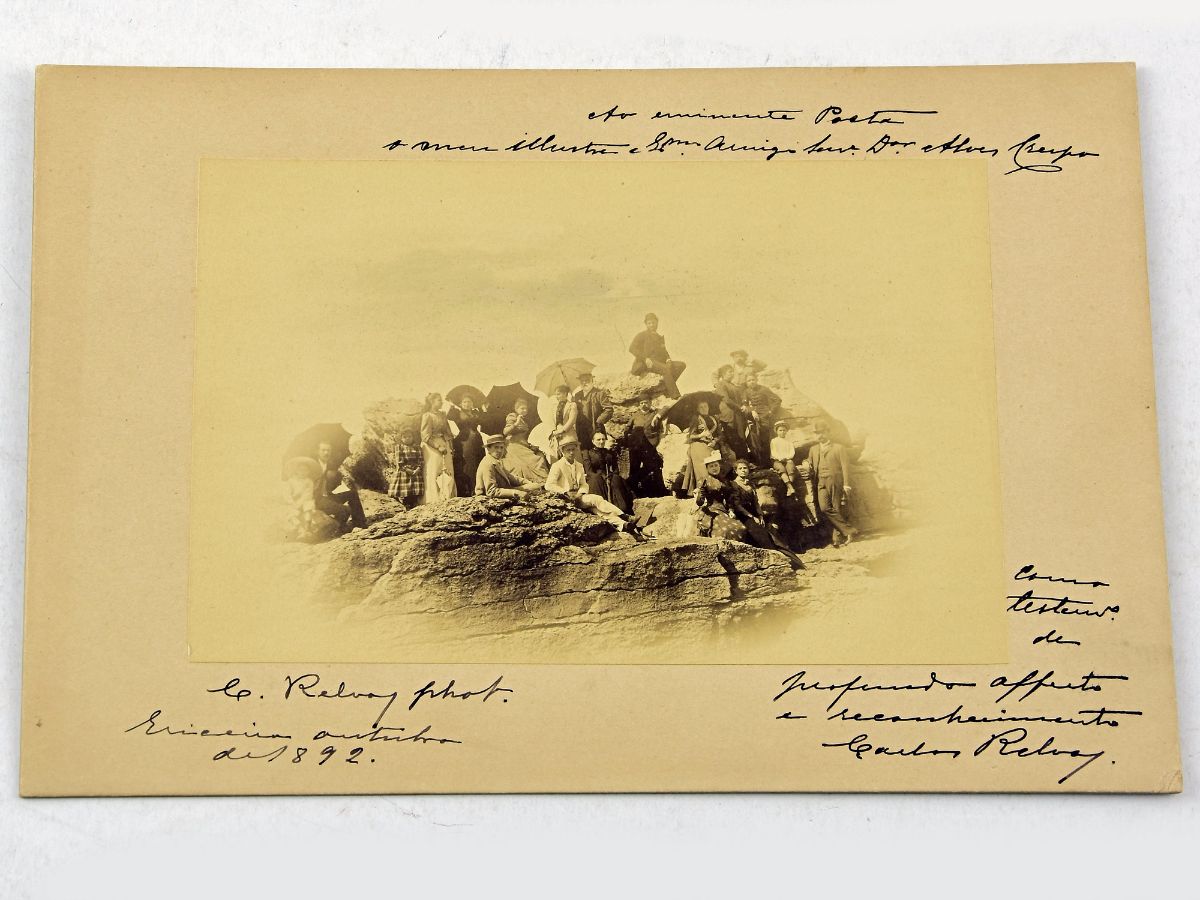 Ao eminente Poeta
o meu illustre e Exmo. Amigo Snr. Dor. Alves Crespo
como
testemo.
de
profundo affecto
e reconhecimento
Carlos Relvas.
C. Relvas phot.
Ericeira outubro
de 1892.